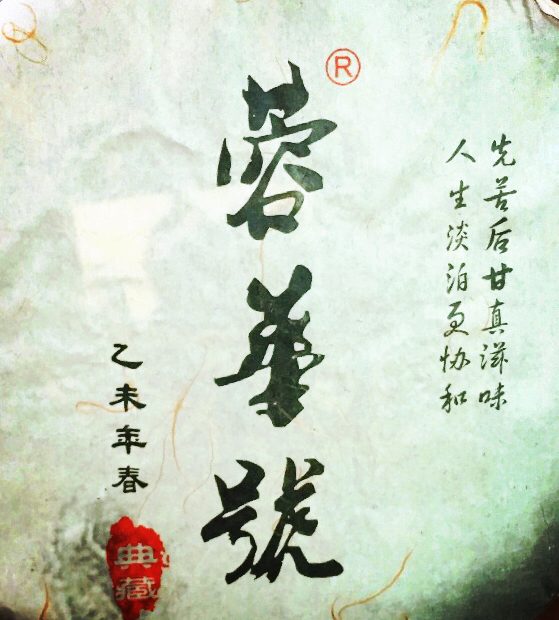 先苦后甘真滋味
人生淡泊更协和
蓉華號
®
乙未年春
典藏